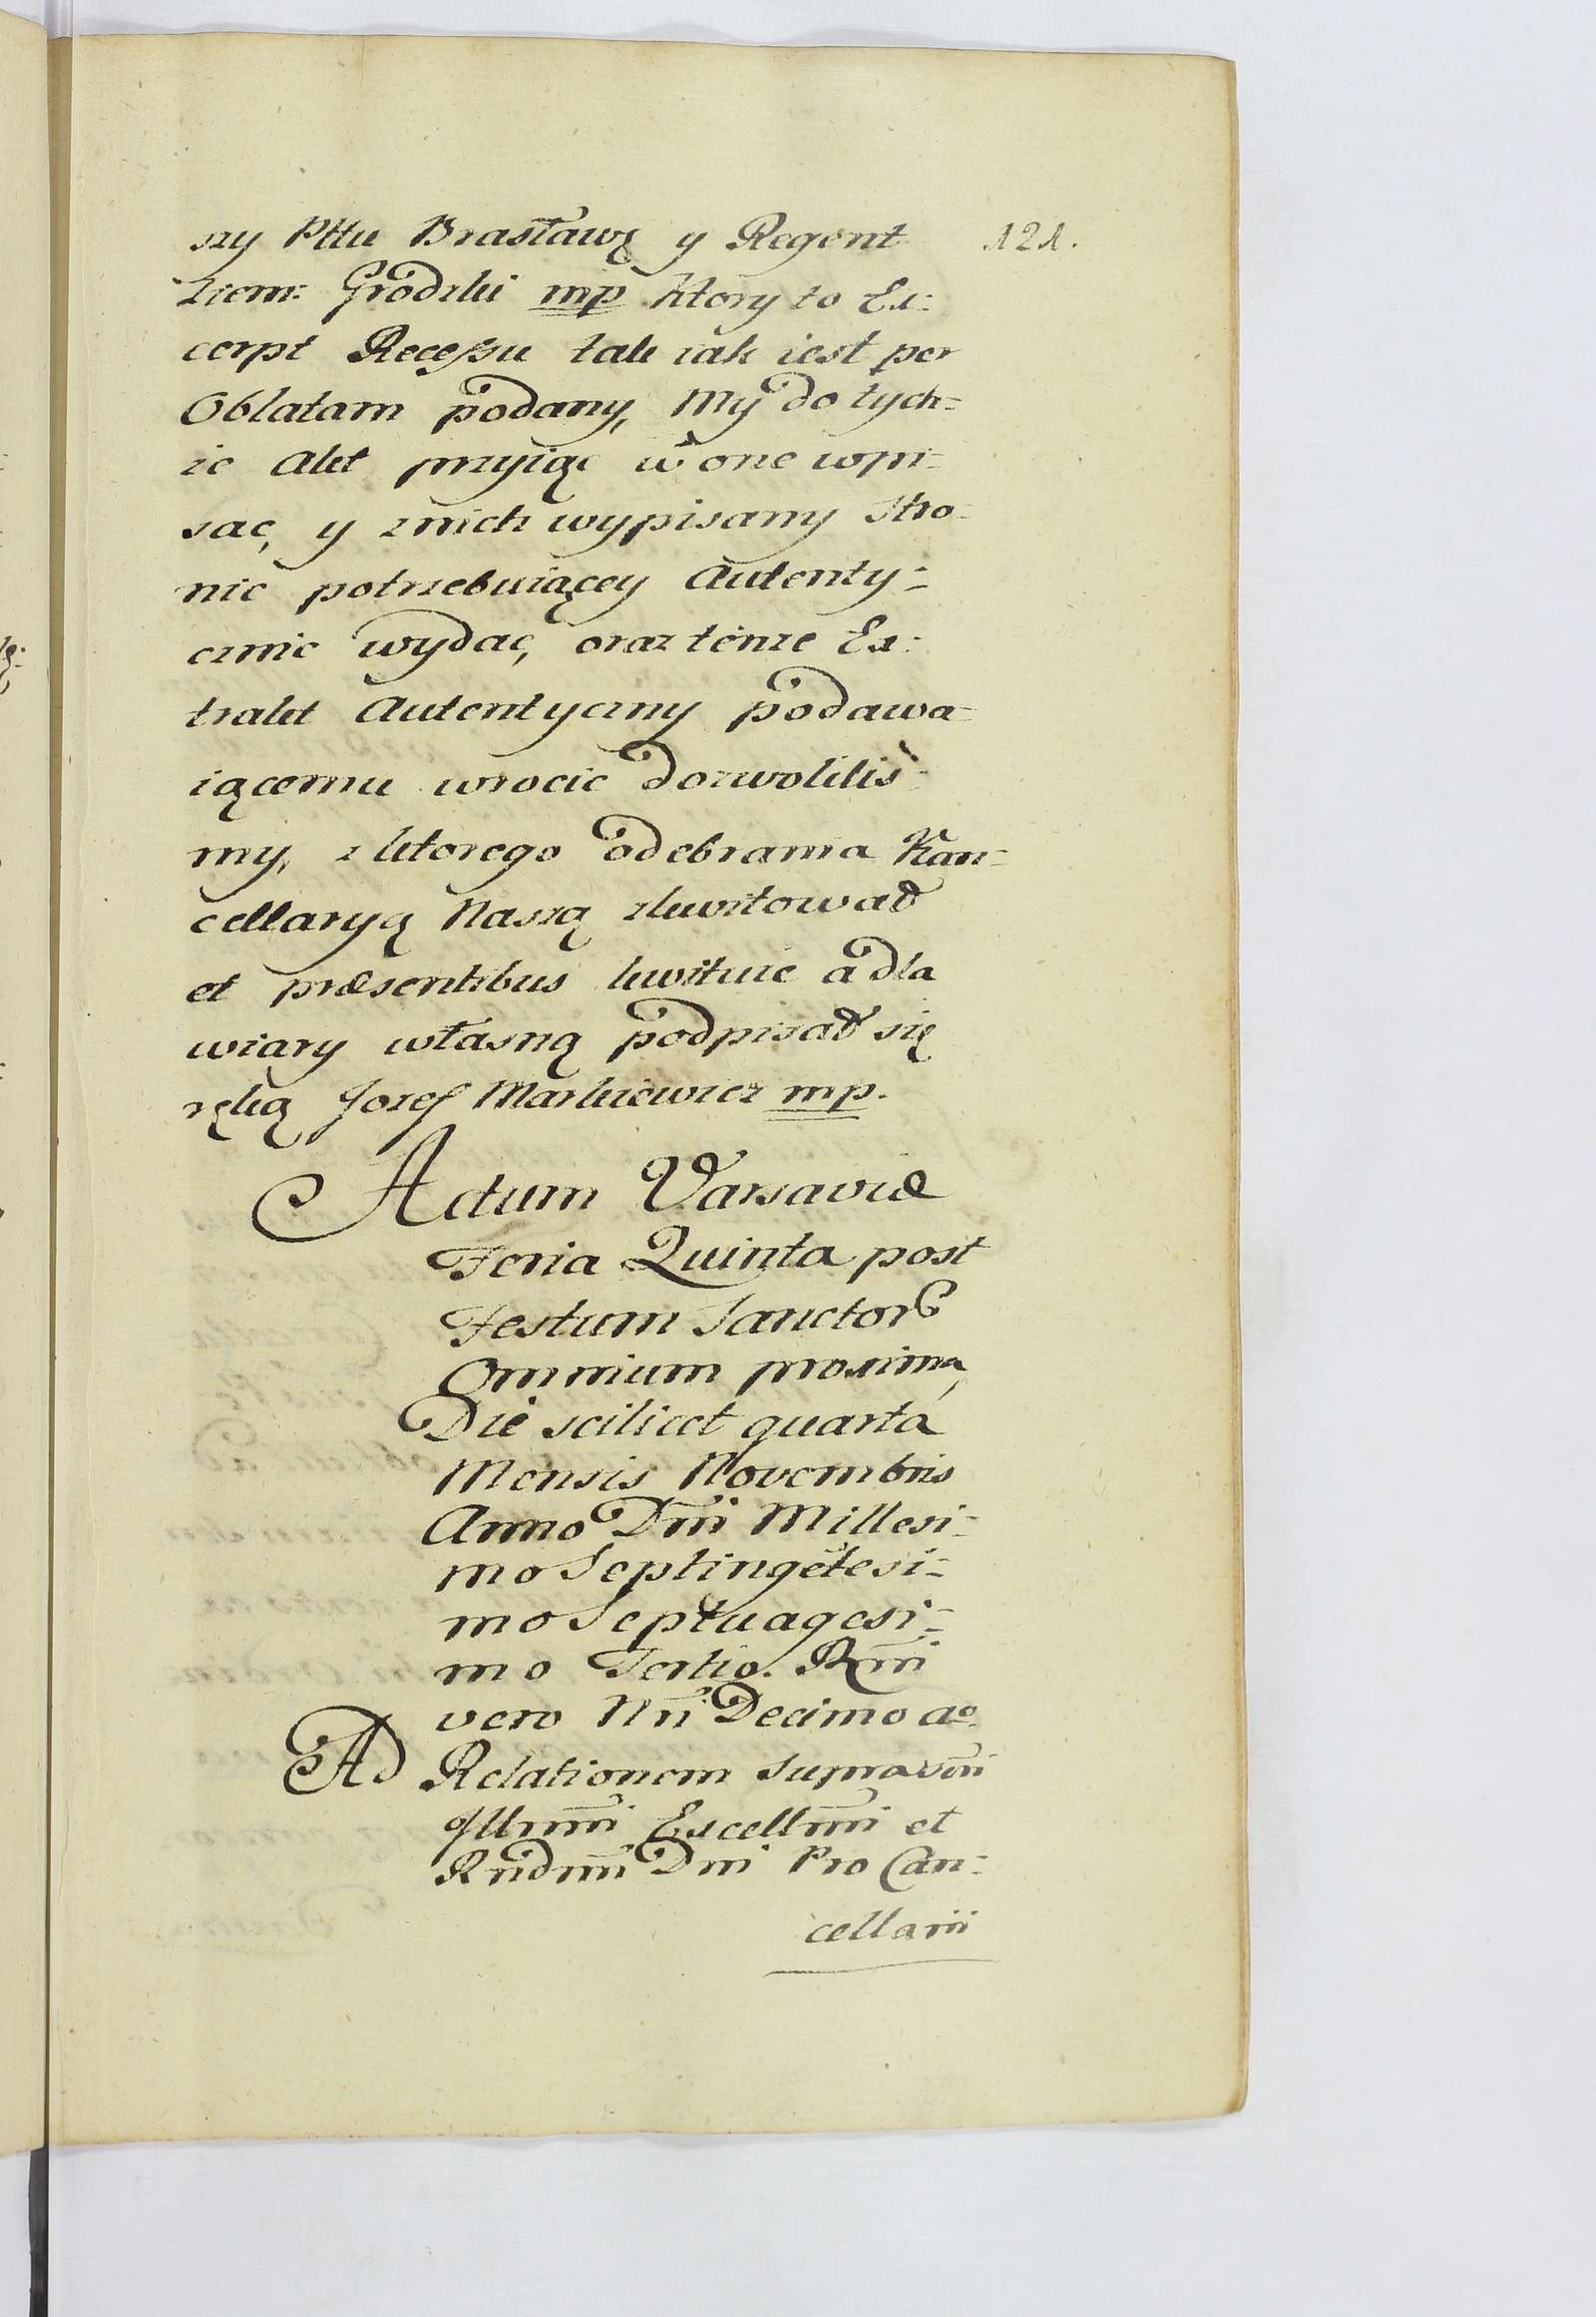 szy Pttu Brasławę y Regent 121.
Ziem: Grodzki mp Ktory to Ex:
cerpt Recessu tak iak iest per
Oblatam podany, My do tych=
że Akt przyiąć w one wpi=
sac, y z nich wypisany Stro=
nie potrzebuiącey Autenty=
cznie wydac, oraz tenże Ex:
trakt Autentyczny podawa=
iącemu wrocic dozwolilis=
my, z ktorego odebrania Kan=
cellaryą Naszą zkwitował
et præsentibus kwituie a dla
wiary własną podpisał się
ręką Jozef Markiewicz mp.
Actum Varsaviæ
Feria Quinta post
Festum Sanctor
Omnium proxima,
Die scilicet quarta
Mensis Novembris
Anno Dni Millesi=
mo Septingetesi=
mo Septuagesi=
mo Tertio. Rni
vero Nri Decimo ao.
Ad Relationem supra
Illmi Excellmi et
Rndmi Dni Pro Can=
cellarii